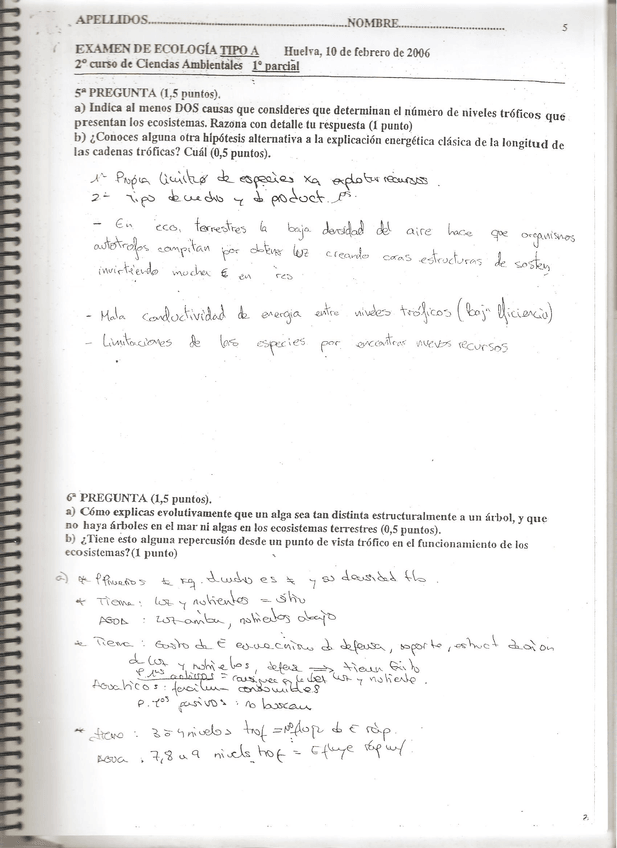 APELLIDOS............................................................NOMBRE..................................
5
EXAMEN DE ECOLOGÍA TIPO A Huelva, 10 de febrero de 2006
2º curso de Ciencias Ambientales 1º parcial
5ª PREGUNTA (1,5 puntos).
a) Indica al menos DOS causas que consideres que determinan el número de niveles tróficos que
presentan los ecosistemas. Razona con detalle tu respuesta (1 punto)
b) ¿Conoces alguna otra hipótesis alternativa a la explicación energética clásica de la longitud de
las cadenas tróficas? Cuál (0,5 puntos).
1- Propia de especies xa explotar recursos.
2- Tipo de medio y d product. 1ª
- En eco. terrestres la baja densidad del aire hace que organismos
autótrofos compitan por obtener luz creando estructuras de sosten
invirtiendo mucha E en
- Mala conductividad de energía entre niveles tróficos (baja eficiencia)
- Limitaciones de las especies por encontrar nuevos recursos
6ª PREGUNTA (1,5 puntos).
a) Cómo explicas evolutivamente que un alga sea tan distinta estructuralmente a un árbol, y que
no haya árboles en el mar ni algas en los ecosistemas terrestres (0,5 puntos).
b) ¿Tiene esto alguna repercusión desde un punto de vista trófico en el funcionamiento de los
ecosistemas?(1 punto)
a) es y su densidad
* Tierra: luz y nutrientes =
Agua: luz arriba, nutrientes abajo
* Tierra: Gasto de E en de defensa, soporte,
d luz y nutrientes, defensa ⇒ tienen éxito
luz y nutriente.
Acuáticos: facilmen consumibles
pasivos: no buscan
* tierra: 3 o 4 niveles trof = d E ráp.
Agua. 7, 8 u 9 nivels trof = E fluye ráp
2